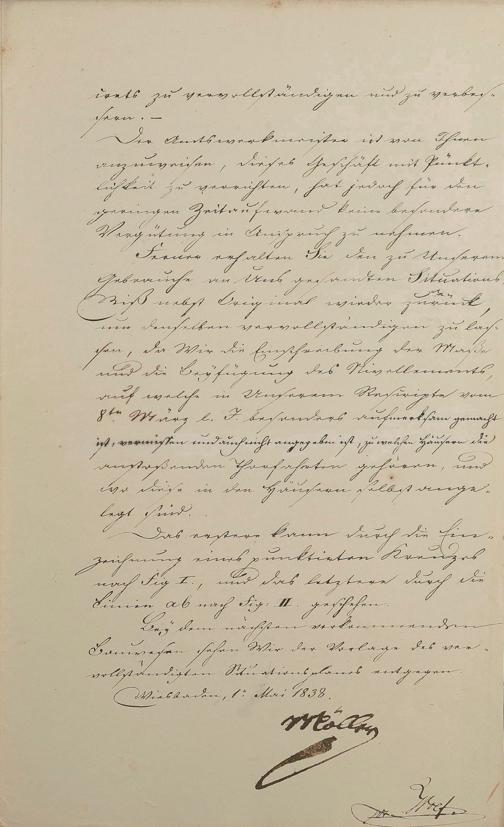 irets zu vervollständigen und zu verbes-
sern. —
Der Amtswerkmeister ist von Ihnen
anzuweisen, dieses Geschäft mit Pünkt-
lichkeit zu verrichten, hat jedoch für den
geringen Zeitaufwand keine besondere
Vergütung in Anspruch zu nehmen.
Ferner erhalten Sie den zu Unserem
Gebrauche an Uns gesandten Situations
Riß nebst Original wieder zurück,
um denselben vervollständigen zu las-
sen, da Wir die Einschreibung der Maaße
und die Beyfügung des Nivellements,
auf welche in Unserem Rescripte vom
8ten März l. J. besonders aufmerksam gemacht
ist, vermissen und auch nicht angegeben ist, zu welchen Häusern die
anstoßenden Thorfahrten gehören, und
wo diese in den Häusern selbst ange-
legt sind.
Das erstere kann durch die Ein-
zeichnung eines punktirten Kreuzes
nach Fig I., und das letztere durch die
Linien ab nach Fig: II. geschehen.
Bey dem nächsten vorkommenden
Bauwesen sehen Wir der Vorlage des ver-
vollständigten Situationsplans entgegen.
Wiesbaden, 1. Mai 1838.
Möller